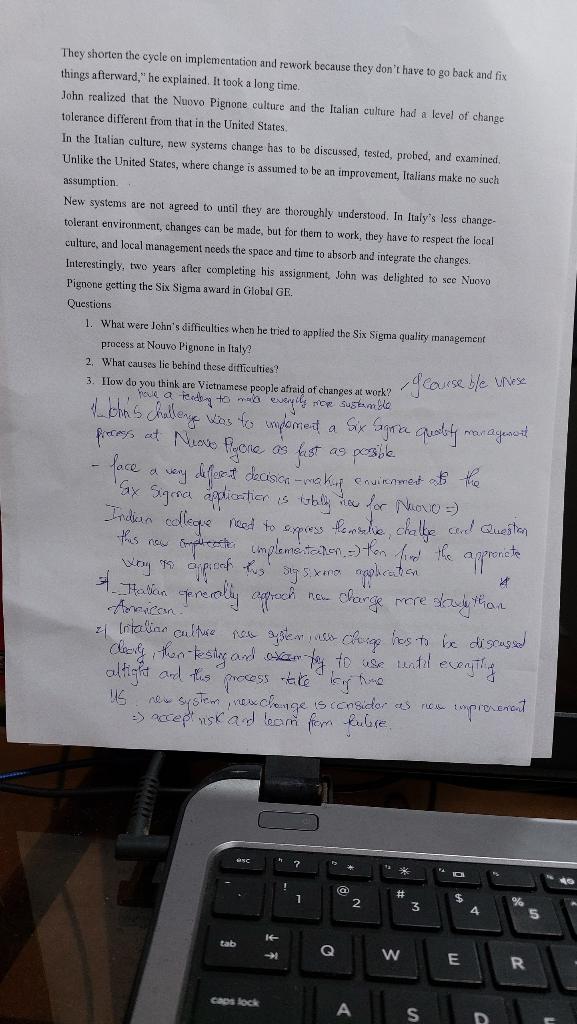 They shorten the cycle on implementation and rework because they don't have to go back and fix
things afterward," he explained. It took a long time.
John realized that the Nuovo Pignone culture and the Italian culture had a level of change
tolerance different from that in the United States.
In the Italian culture, new systems change has to be discussed, tested, probed, and examined.
Unlike the United States, where change is assumed to be an improvement, Italians make no such
assumption.
New systems are not agreed to until they are thoroughly understood. In Italy's less change-
tolerant environment, changes can be made, but for them to work, they have to respect the local
culture, and local management needs the space and time to absorb and integrate the changes.
Interestingly, two years after completing his assignment, John was delighted to see Nuovo
Pignone getting the Six Sigma award in Global GE.
Questions
1. What were John's difficulties when he tried to applied the Six Sigma quality management
process at Nouvo Pignone in Italy?
2. What causes lie behind these difficulties?
3. How do you think are Vietnamese people afraid of changes at work?
Of course b/c VNese
have a to make more
1/ John's challenge was to implement a Six Sigma quality management
process at Nuovo as fast as possible
- face a very different decision-making environment at the
Six Sigma application is totally new for Nuovo =)
Indian need to express and question
this new implementation =) then find the
way to application
- Italian generally approach new change more slowly than
American.
2/ culture new system, new change has to be discussed
, then testing and to use until everything
and this process take long time
US: new system, new change is consider as new improvement
=) accept risk and learn from failure.
esc
?
*
*
~
!
1
@
2
#
3
$
4
%
5
tab
Q
W
E
R
caps lock
A
S
D
F